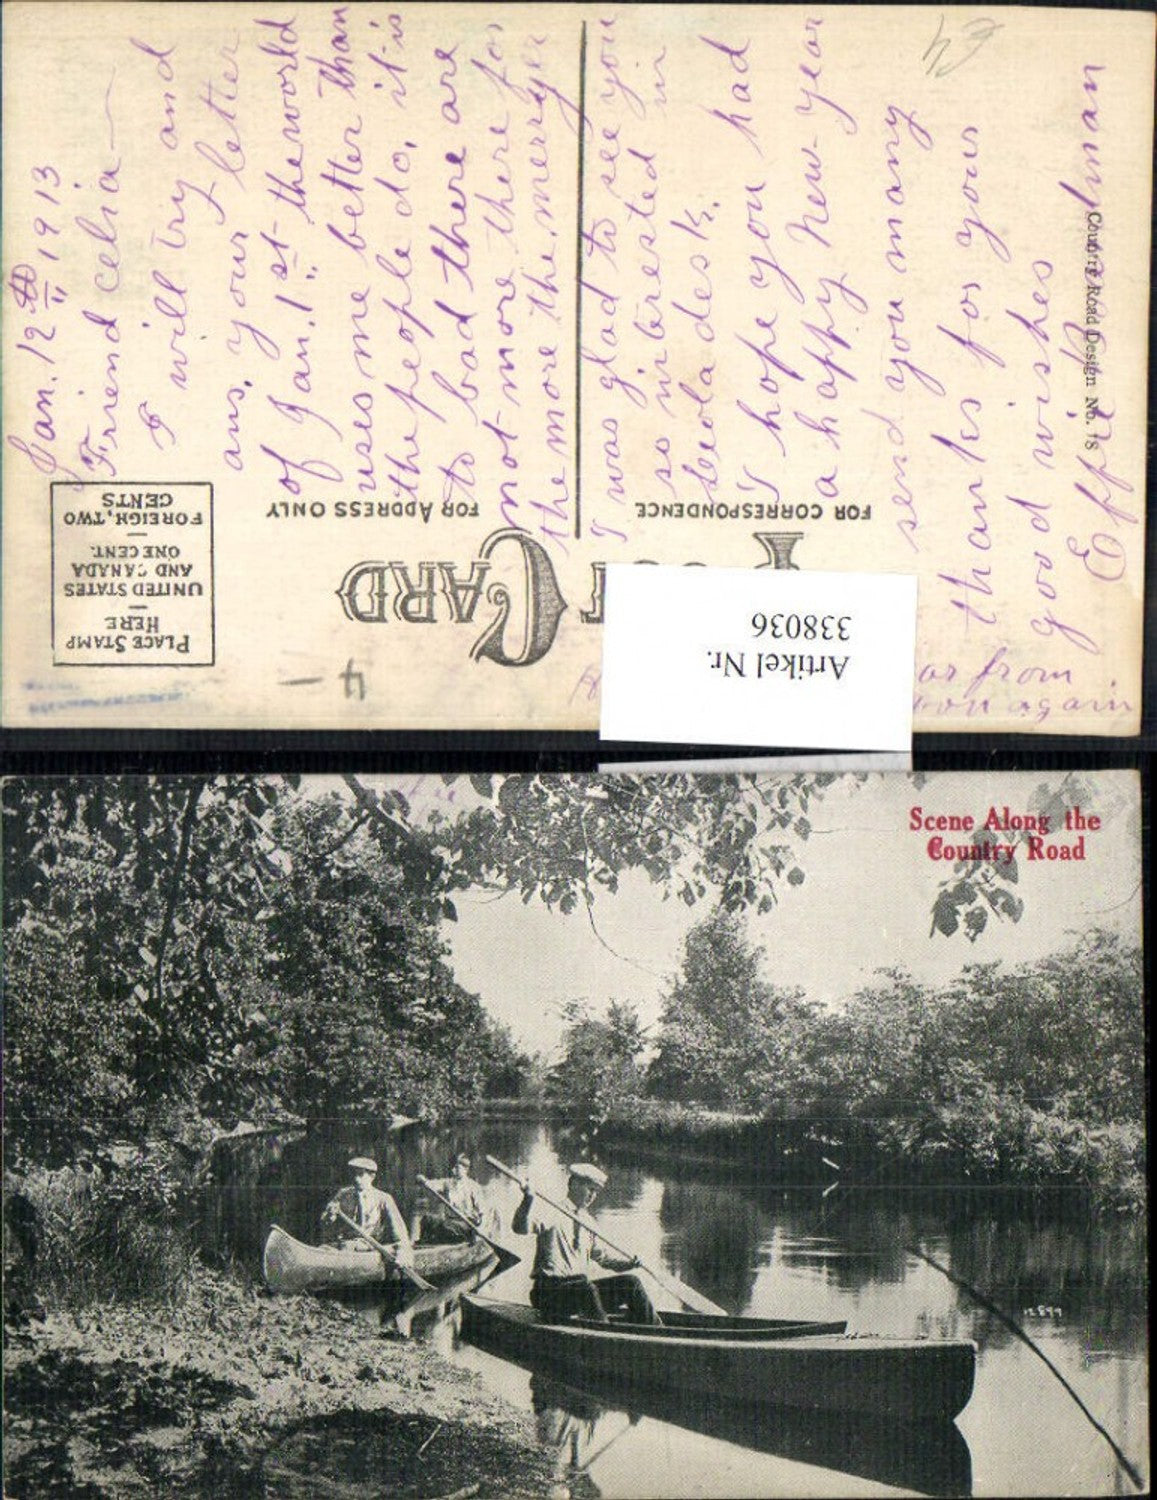 Jan. 12 th 1913
Friend Celia —
I will try and
ans, your letter
of Jan. 1st. the world
uses me better than
the people do, it is
to bad there are
not more there for
the more the merryer
I was glad to see you
so interested in
desk.
I hope you had
a happy New-year
send you many
thanks for your
good wishes
Effie
or from
again
Country Road Design No. 18
POST CARD
FOR CORRESPONDENCE
FOR ADDRESS ONLY
PLACE STAMP
HERE
—
UNITED STATES
AND CANADA
ONE CENT.
—
FOREIGN, TWO
CENTS
Artikel Nr.
338036
4 —
Scene Along the
Country Road
12899